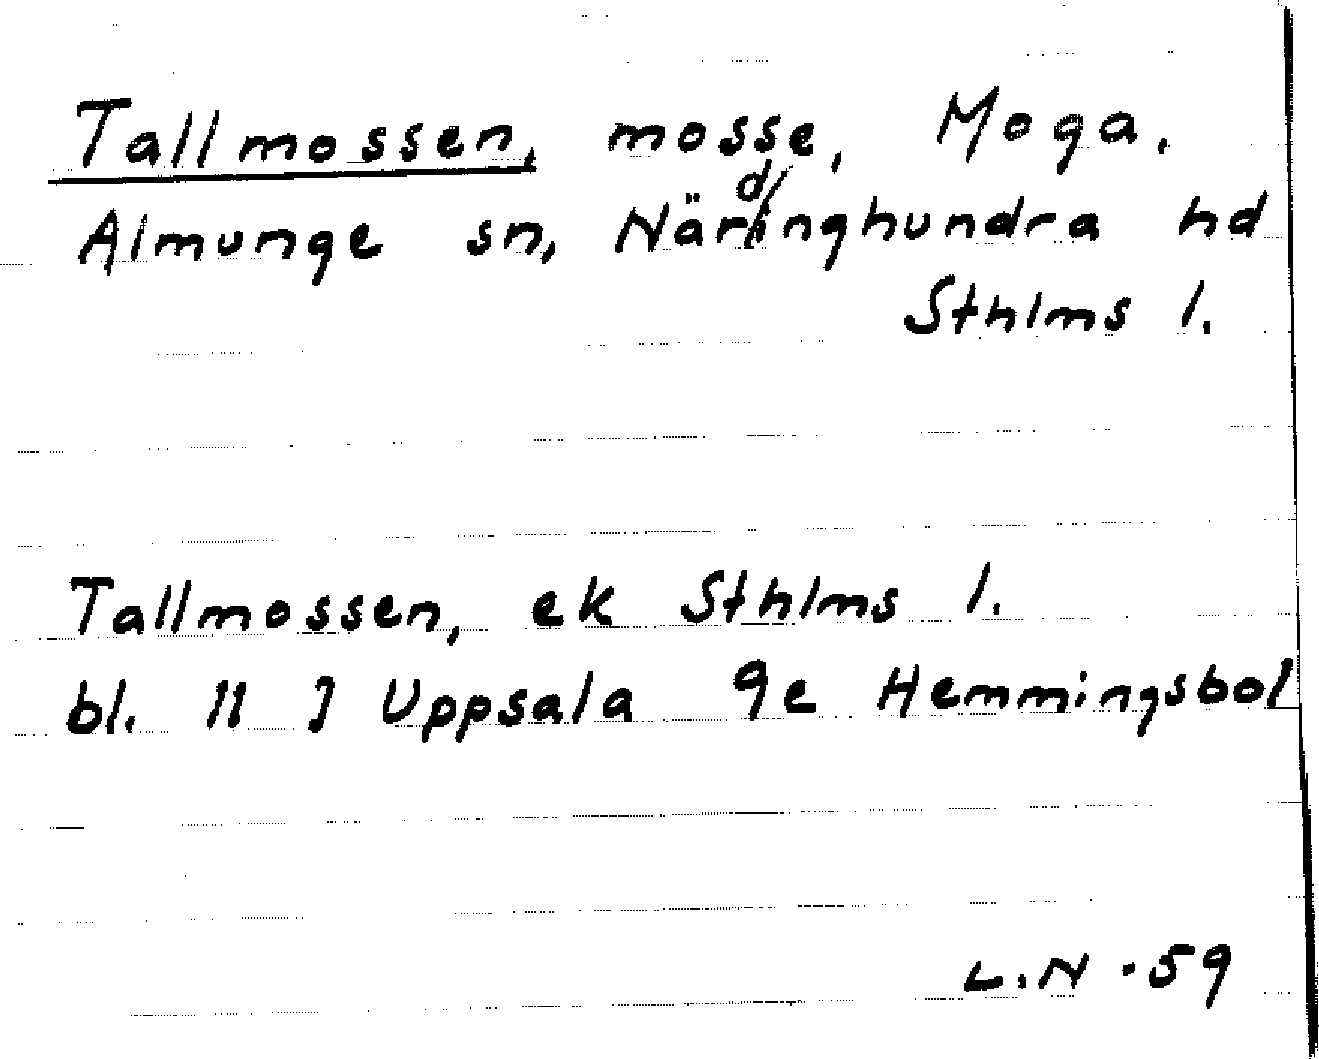 Tallmossen, mosse, Moga.
Almunge sn, Närdinghundra hd
Sthlms l.
Tallmossen, ek Sthlms l.
bl. 11 J Uppsala 9e Hemmingsbol
L.N. 59